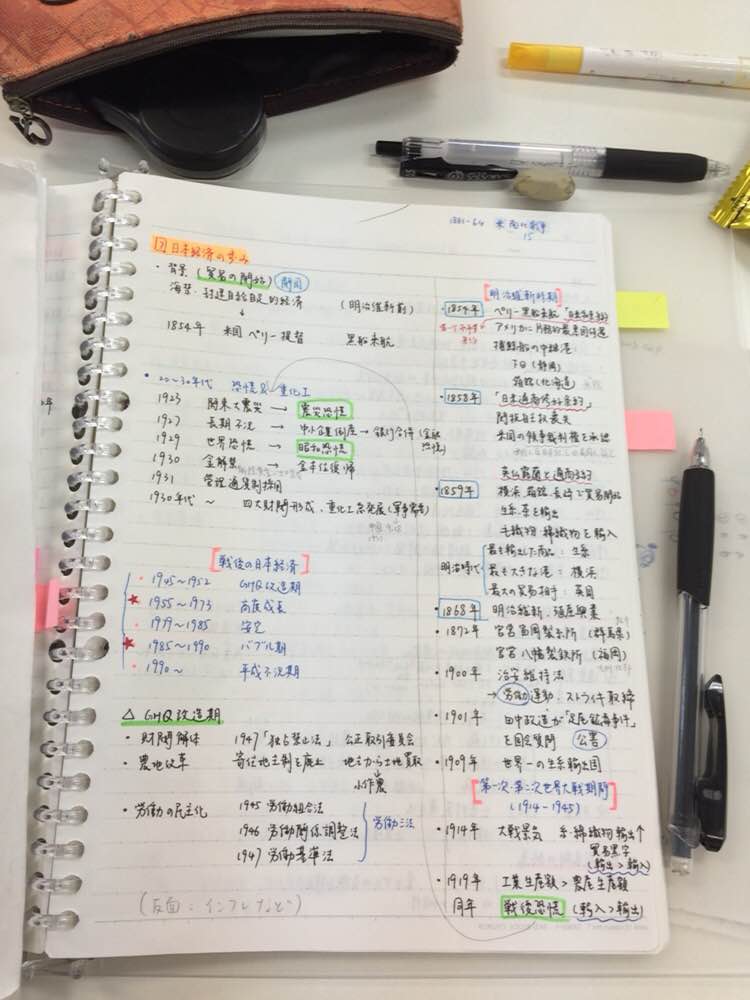 1861-64 米 南北戦争
15
日本経済の歩み
・背景(貿易の開始) 開国
海禁・封建自給自足的経済 (明治維新前)
↓
1854年 米国 ペリー提督 黒船来航
・20~30年代 恐慌&重化工
1923 関東大震災 → 震災恐慌
1927 長期不況 → 中小企業倒産 → 銀行合併(金融恐慌)
1929 世界恐慌 → 昭和恐慌
1930 金解禁 → 金本位復帰
1931 管理通貨制採用
1930年代~ 四大財閥形成、重化工急発展(軍事需要)
[戦後の日本経済]
・1945~1952 GHQ改造期
★1955~1973 高度成長
・1979~1985 安定
★1985~1990 バブル期
・1990~ 平成不況期
△ GHQ改造期
・財閥解体 1947「独占禁止法」 公正取引委員会
・農地改革 寄生地主制を廃止 地主から土地買取
↓
小作農
・労働の民主化 1945 労働組合法
1946 労働関係調整法 労働三法
1947 労働基準法
(反面:インフレなど)
[明治維新時期]
・1854年 ペリー黒船来航「日米和親条約」
アメリカに片務的最恵国待遇
捕鯨船の中継港:
下田(静岡)
箱館(北海道)
・1858年「日米通商修好条約」
関税自主权喪失
米国の領事裁判権を承認
英仏露蘭と通商条約
・1859年 横浜、箱館、長崎で貿易開始
生糸・茶を輸出
毛織物・綿織物を輸入
明治時代 最も輸出した商品:生糸
最も大きな港:横浜
最大の貿易相手:英国
・1868年 明治維新・殖産興業
・1872年 官営富岡製糸所(群馬県)
官営八幡製鉄所(福岡)
・1900年 治安維持法
→労働運動、ストライキ取締
・1901年 田中政造が「足尾鉱毒事件」
を国会質問 公害
・1909年 世界一の生糸輸出国
[第一次・第二次世界大戦期間]
(1914-1945)
・1914年 大戦景気 糸・綿織物輸出↑
貿易黒字
(輸出>輸入)
・1919年 工業生産額>農産生産額
同年 戦後恐慌 (輸入>輸出)